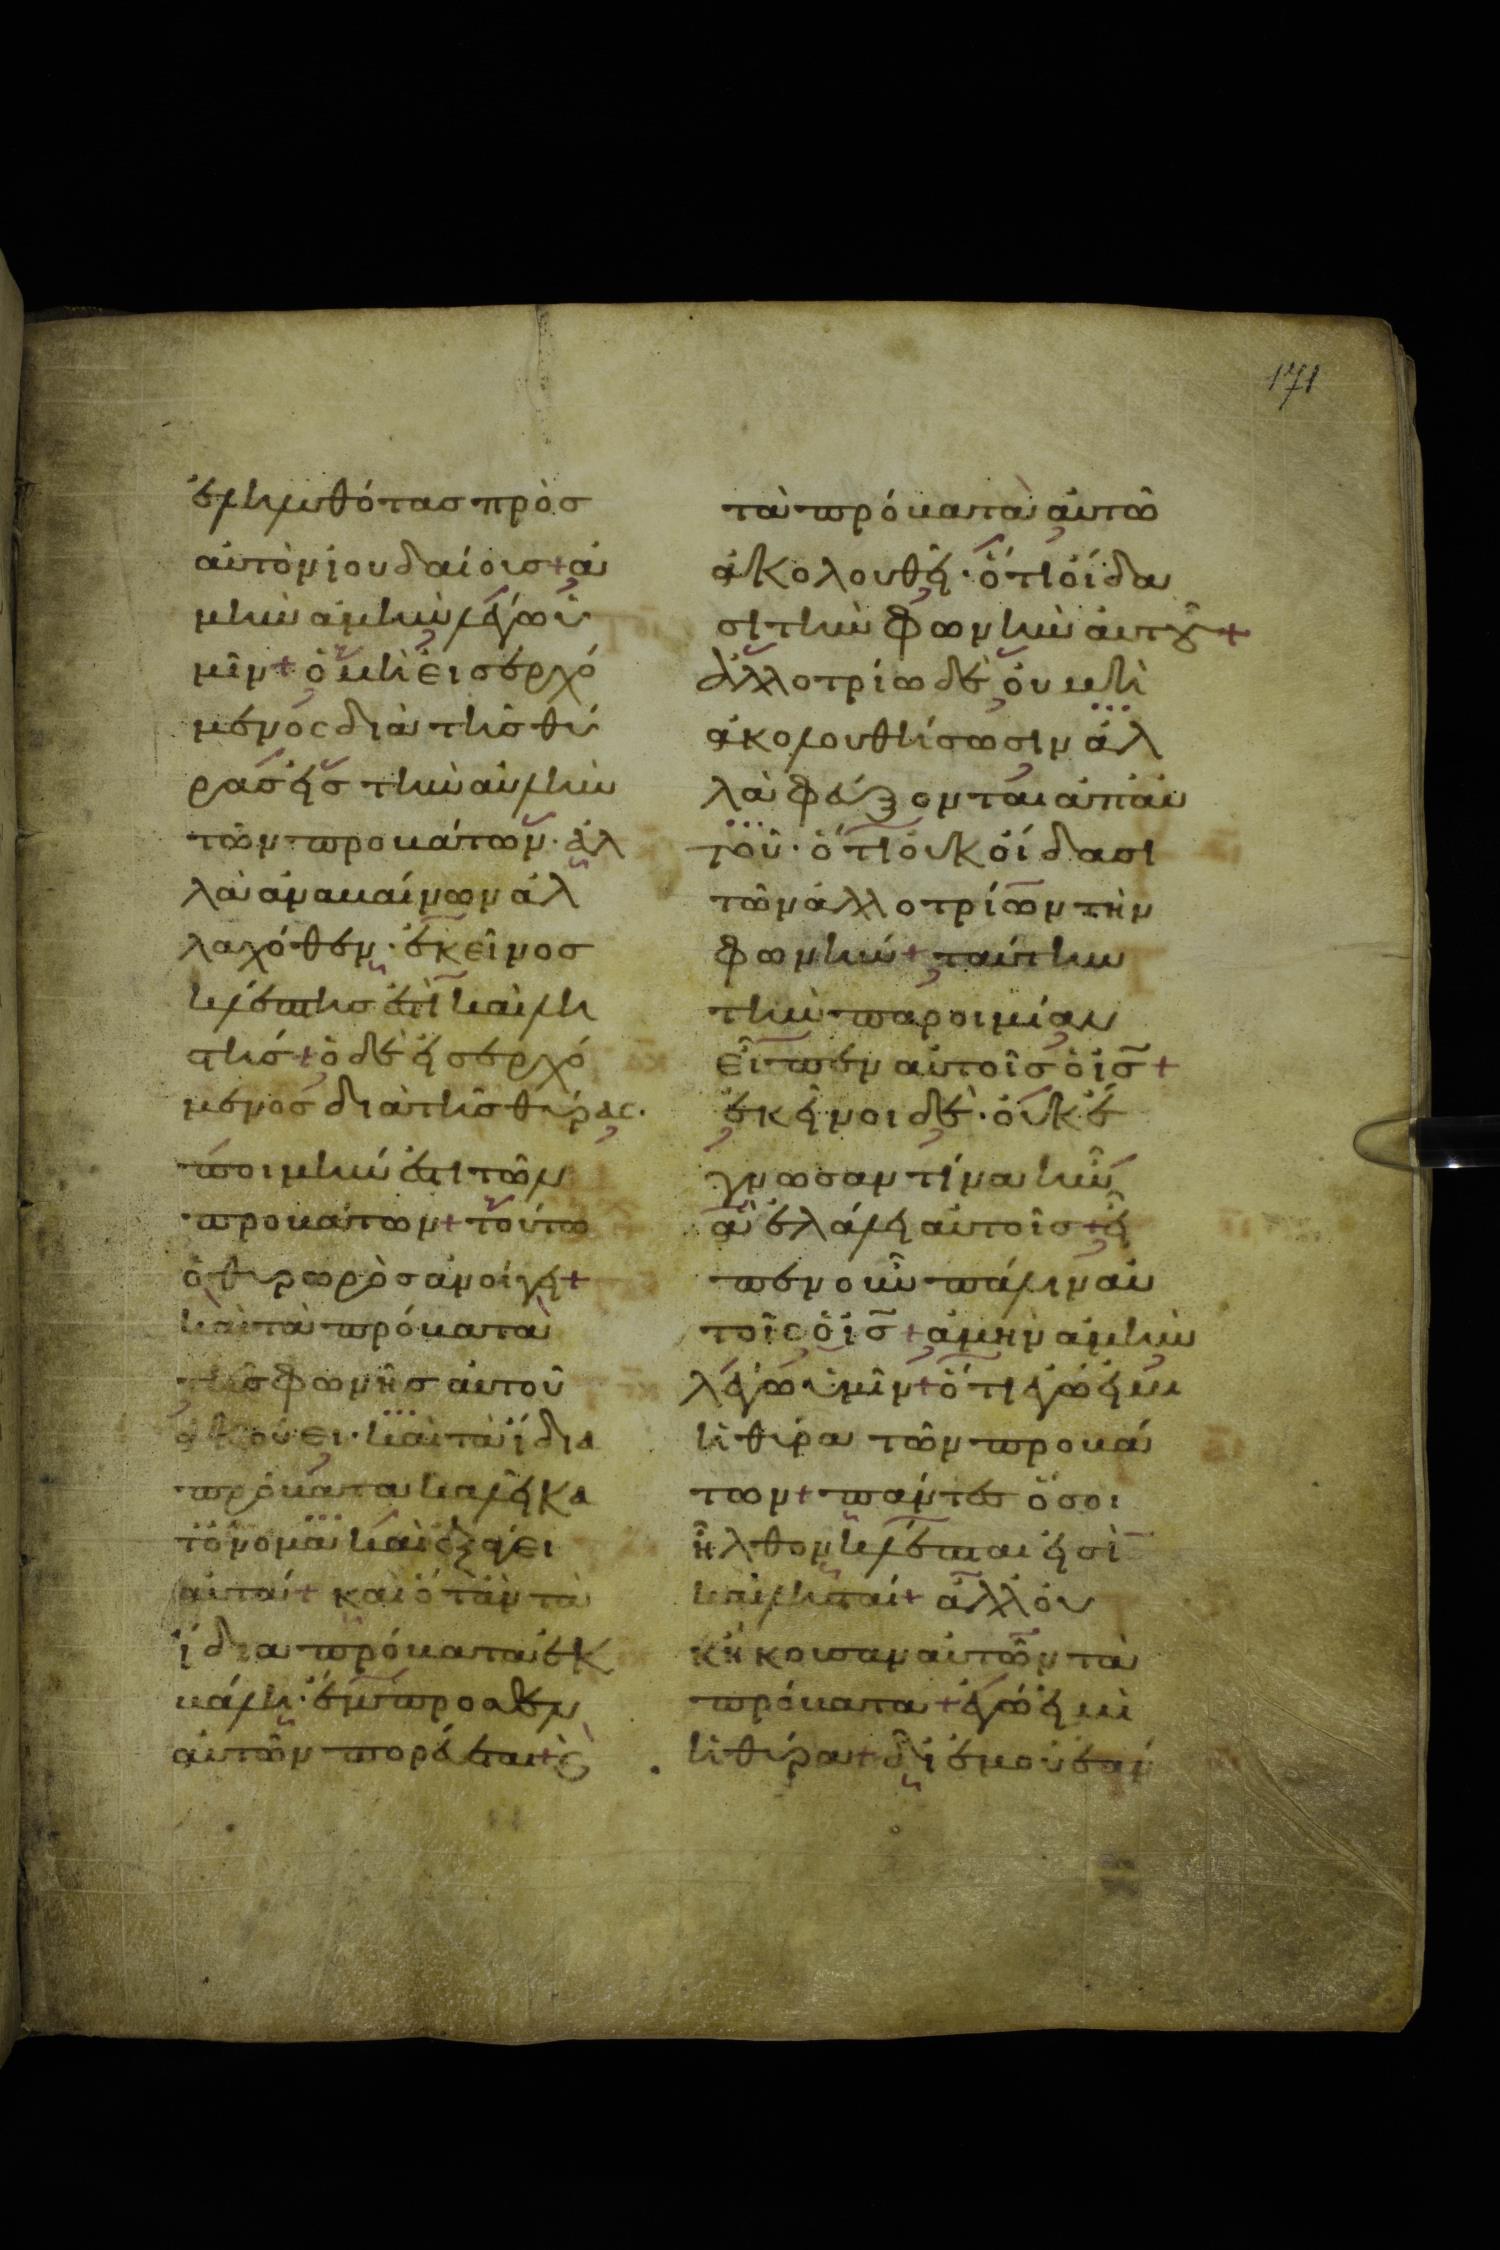 171
ἐληλυθότας πρὸς
αὐτὸν ἰουδαίους + ἀ
μὴν ἀμὴν λέγω ὑ
μῖν + ὁ μὴ εἰσερχό
μενος διὰ τῆς θύ
ρας εἰς τὴν αὐλὴν
τῶν προβάτων · ἀλ
λὰ ἀναβαίνων ἀλ
λαχόθεν · ἐκεῖνος
κλέπτης ἐστὶ καὶ λη
στής + ὁ δὲ εἰσερχό
μενος διὰ τῆς θύρας ·
ποιμήν ἐστι τῶν
προβάτων + τούτω
ὁ θυρωρὸς ἀνοίγει +
καὶ τὰ πρόβατα
τῆς φωνῆς αὐτοῦ
ἀκούει · καὶ τὰ ἴδια
πρόβατα καλεῖ κα
τ' ὄνομα καὶ ἐξάγει
αὐτά + καὶ ὅταν τὰ
ἴδια πρόβατα ἐκ
βάλη · ἔμπροσθεν
αὐτῶν πορεύεται + καὶ
τὰ πρόβατα αὐτῶ
ἀκολουθεῖ · ὅτι οἴδα
σι τὴν φωνὴν αὐτοῦ +
ἀλλοτρίω δὲ οὐ μὴ
ἀκολουθήσωσιν ἀλ
λὰ φεύξονται ἀπ' αὐ
τοῦ · ὅτι οὐκ οἴδασι
τῶν ἀλλοτρίων τὴν
φωνήν + ταύτην
τὴν παροιμίαν
εἶπεν αὐτοῖς ὁ ις +
ἐκεῖνοι δὲ · οὐκ ἔ
γνωσαν τίνα ἦν
ἃ ἐλάλει αὐτοῖς + εἶ
πεν οὖν πάλιν αὐ
τοῖς ὁ ις + ἀμὴν ἀμὴν
λέγω ὑμῖν + ὅτι ἐγώ εἰμι
ἡ θύρα τῶν προβά
των + πάντες ὅσοι
ἦλθον κλέπται εἰσὶ
καὶ λησταί + ἀλλ' οὐ
κ ἤκουσαν αὐτῶν τὰ
πρόβατα + ἐγώ εἰμι
ἡ θύρα + δι' ἐμοῦ ἐάν